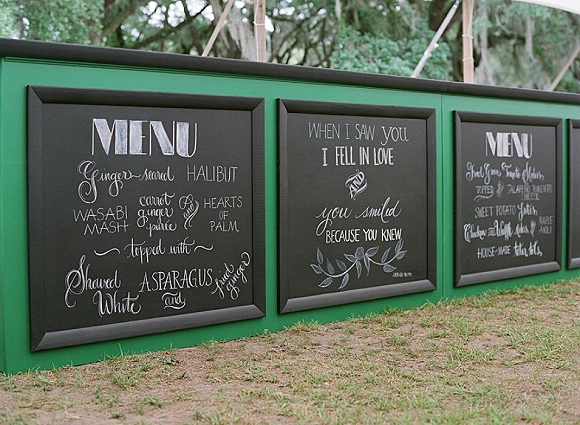 MENU
Ginger-seared HALIBUT
WASABI MASH carrot ginger purée & HEARTS OF PALM
topped with
Shaved White ASPARAGUS and fried ginger
WHEN I SAW YOU
I FELL IN LOVE
AND
you smiled
BECAUSE YOU KNEW
MENU
Fried Green Tomato Sliders
TOPPED JALAPENO PIMENTO CHEESE
SWEET POTATO
Chicken and Waffle MAPLE
HOUSE-MADE tater tots